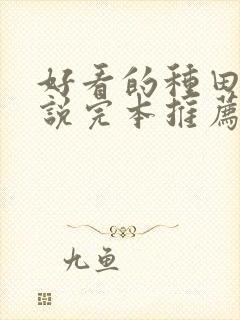 好看的種田
說完本推薦
九鱼